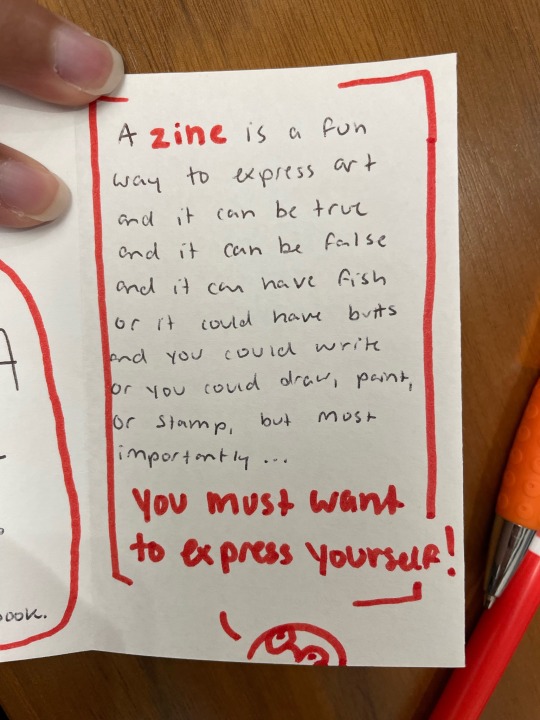 A zine is a fun
way to express art
and it can be true
and it can be false
and it can have fish
or it could have butts
and you could write
or you could draw, paint,
or stamp, but most
importantly ...
You must want
to express yourself!